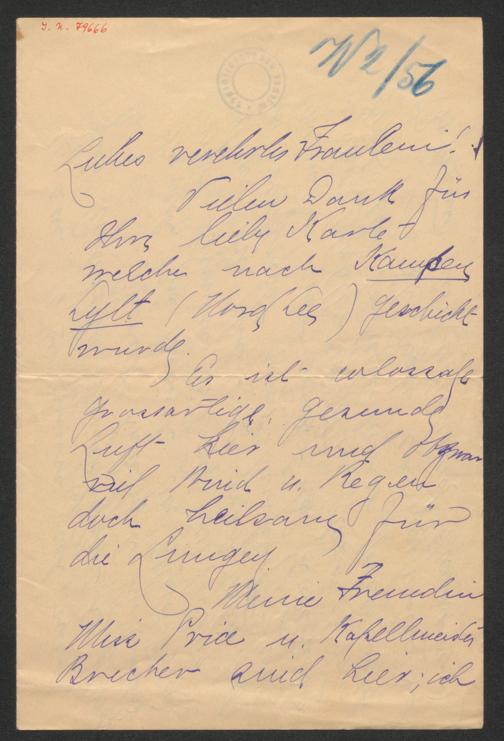 J. N. 79666
N 2/56
Liebes verehrtes Fräulein!
Vielen Dank für
Ihre liebe Karte
welche nach Kampen
Sylt (Nordsee) geschickt
wurde.
Es ist colossale
grossartige, gesunde
Luft hier und obzwar
viel Wind u. Regen
doch heilsam für
die Lungen
Meine Freundin
Miss Price u. Kapellmeister
Brecher sind hier; ich